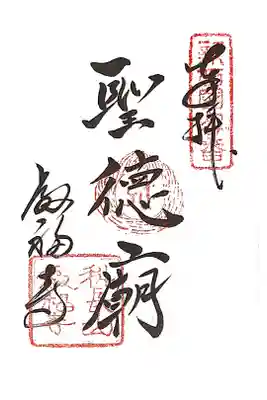 奉拝
聖徳廟
叡福寺